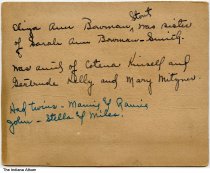 Stout
Eliza Ann Bowman, was sister
of Sarah Ann Bowman-Smith.
was aunt of Cotena Kinsell and
Gertrude Kelly and Mary
Had twins - Mamie & Ramie
John - Stella & Miles.
The Indiana Album